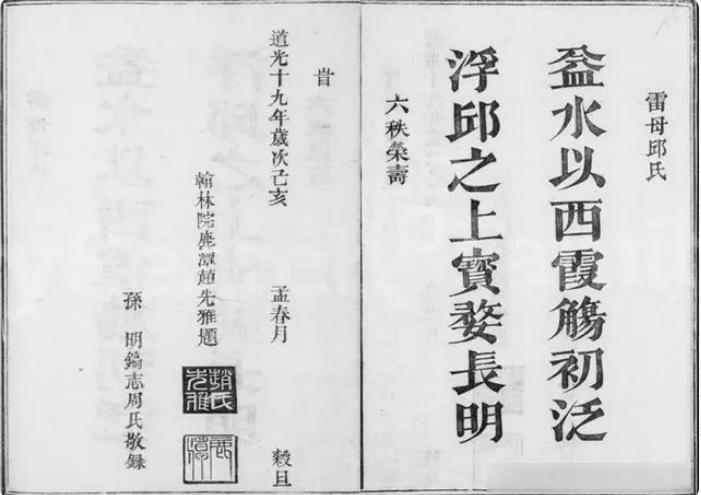 雷母邱氏
盆水以西霞觴初泛
浮邱之上寶婺長明
六秩榮壽
旹
道光十九年歲次己亥 孟春月 穀旦
翰林院鹿潭趙先雅題
趙氏先雅
鹿潭
孫 明鎬志周氏敬錄